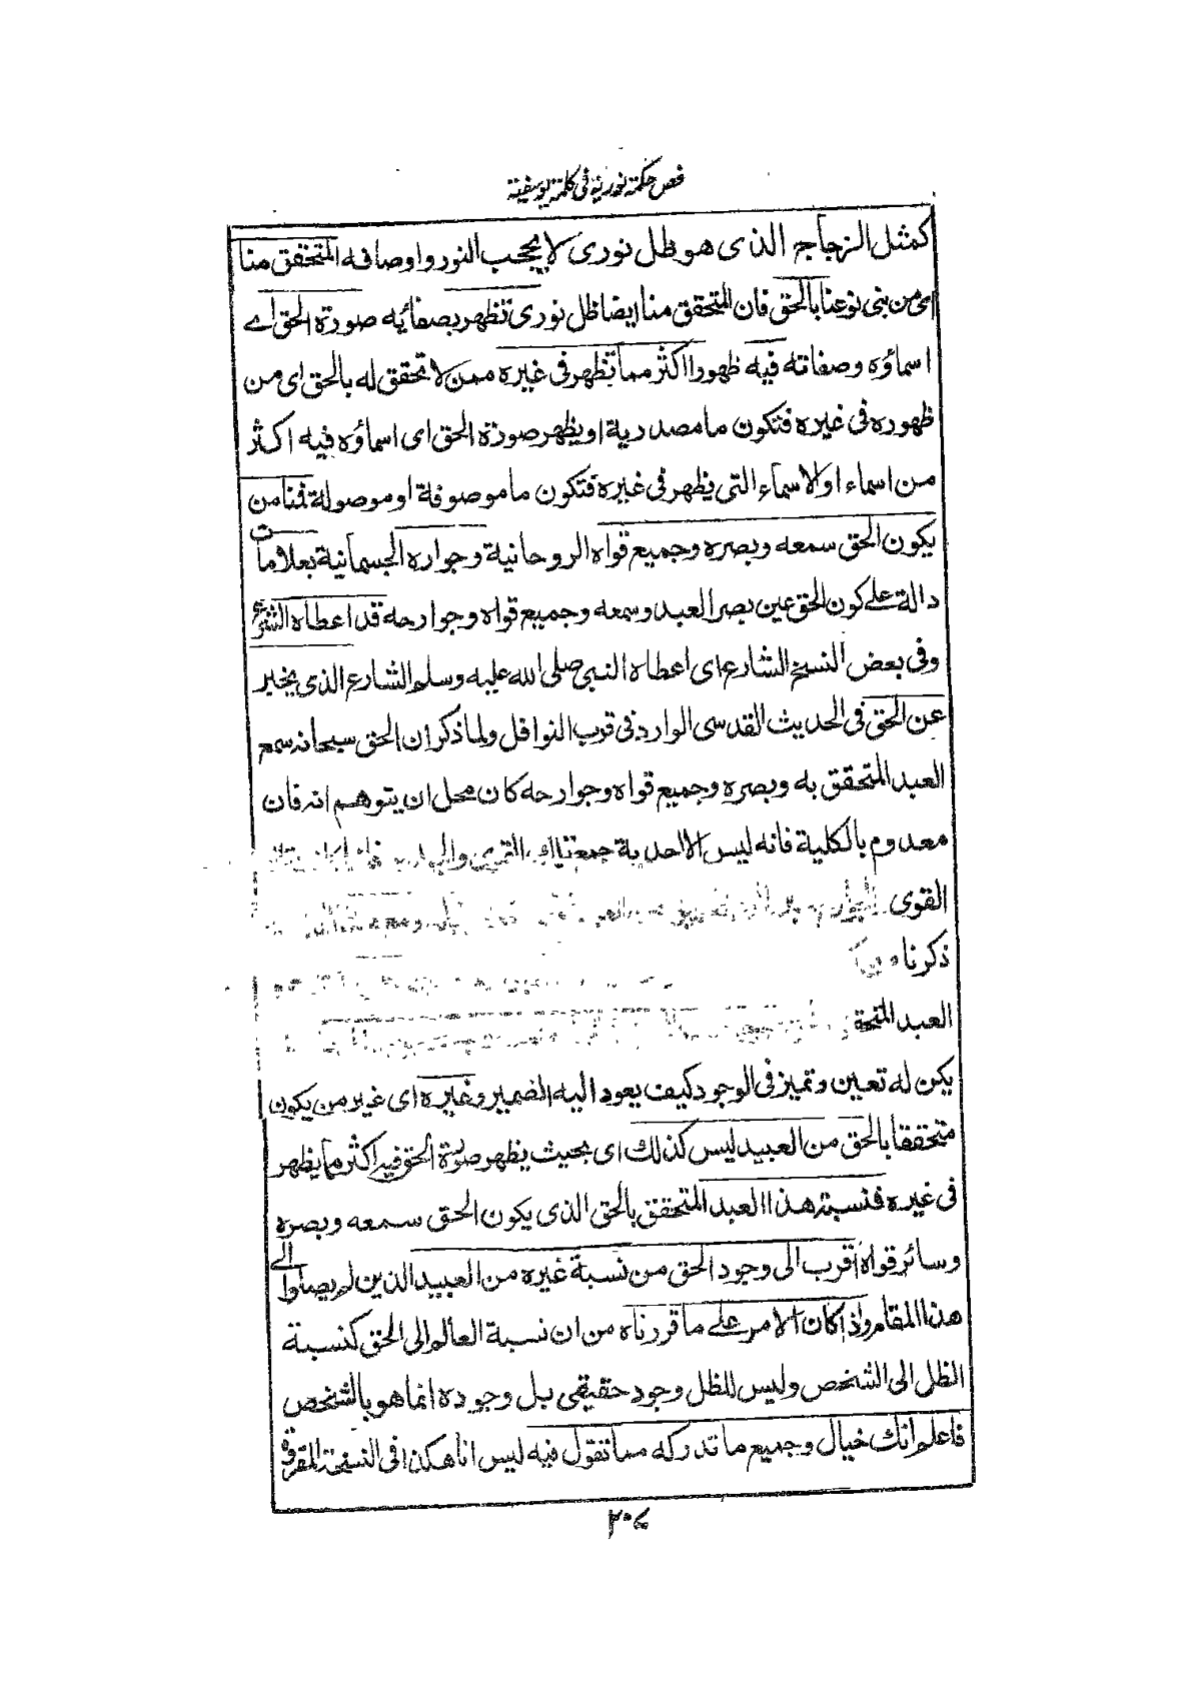 فص حكمة نورية فى كلمة يوسفية
كمثل الزجاج الذى هو ظل نورى لا يحجب النور واوصافه المتحقق منا
اى من بنى نوعنا بالحق فان المتحقق منا ايضا ظل نورى تظهر بصفائه صورة الحق اے
اسماؤه وصفاته فيه ظهورا اكثر مما تظهر فى غيره ممن لا تحقق له بالحق اى من
ظهوره فى غيره فتكون ما مصدرية او يظهر صورة الحق اى اسماؤه فيه اكثر
من اسماء او الاسماء التى يظهر فى غيره فتكون ما موصوفة او موصولة فمنا من
يكون الحق سمعه وبصره وجميع قواه الروحانية وجواره الجسمانية بعلامات
دالة على كون الحق عين بصر العبد وسمعه وجميع قواه وجوارحه قد اعطاه الشرع
وفى بعض النسخ الشارع اى اعطاه النبى صلى الله عليه وسلم الشارع الذى يخبر
عن الحق فى الحديث القدسى الوارد فى قرب النوافل ولما ذكر ان الحق سبحانه سمع
العبد المتحقق به وبصره وجميع قواه وجوارحه كان محل ان يتوهم انه فان
معدوم بالكلية فانه ليس الا احدية جمعية القوى
القوى
ذكرنا
العبد
يكن له تعين وتميز فى الوجود كيف يعود اليه الضمير وغيره اى غير من يكون
متحققا بالحق من العبيد ليس كذلك اى بحيث يظهر صورة الحق فيه اكثر ما يظهر
فى غيره فنسبة هذا العبد المتحقق بالحق الذى يكون الحق سمعه وبصره
وسائر قواه اقرب الى وجود الحق من نسبة غيره من العبيد الذين لم يصلوا الے
هذا المقام واذا كان الامر على ما قررناه من ان نسبة العالم الى الحق كنسبة
الظل الى الشخص وليس للظل وجود حقيقى بل وجوده انما هو بالشخص
فاعلم انك خيال وجميع ما تدركه مما تقول فيه ليس انا هكذا فى النسخة المقروة